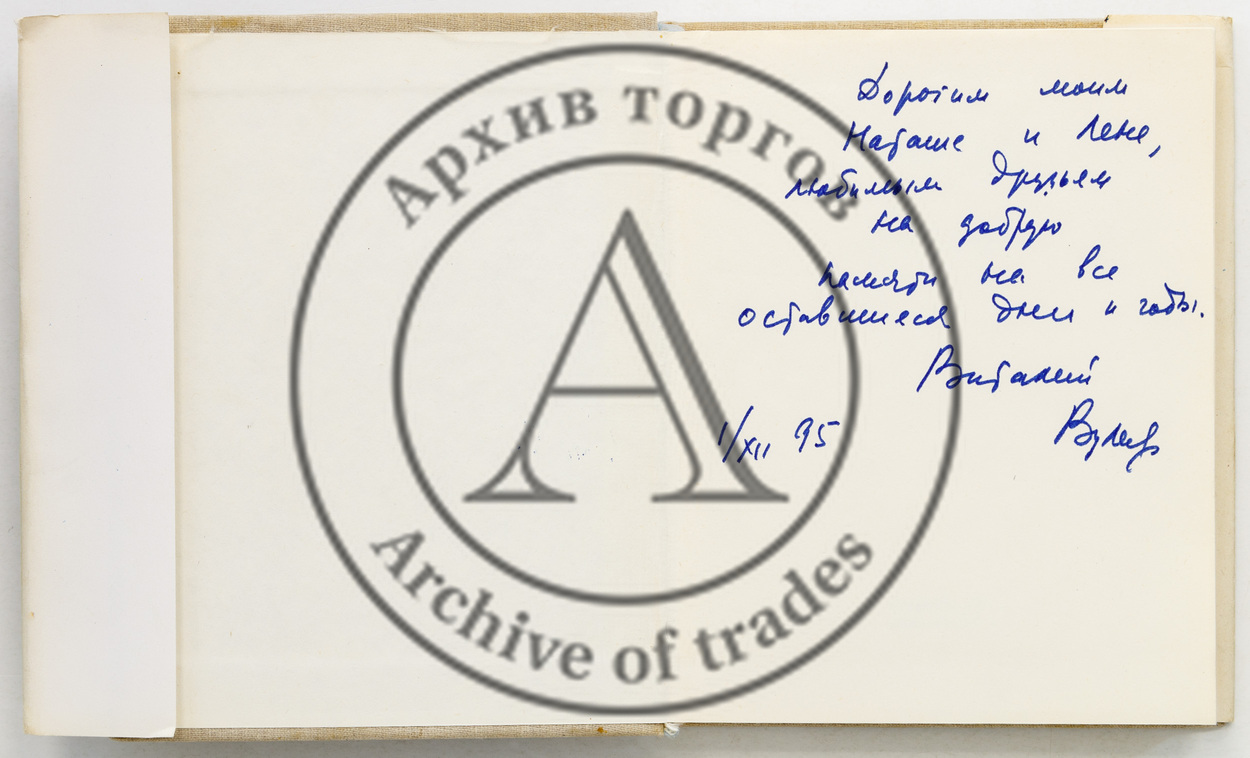 Архив торгов
Дорогим моим
Наташе и Лене,
любимым друзьям
на добрую
память на все
оставшиеся дни и годы.
Виталий
Вульф
1/XII 95
A
Archive of trades